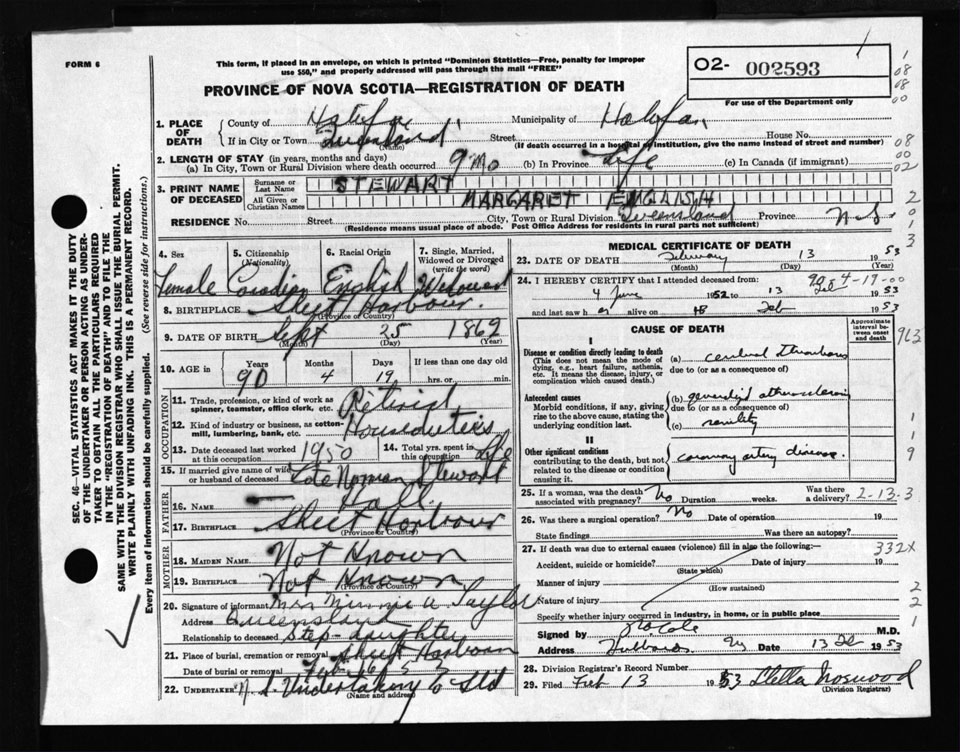 FORM 6
This form, if placed in an envelope, on which is printed "Dominion Statistics—Free, penalty for improper
use $50," and properly addressed will pass through the mail "FREE"
O2- 002593
For use of the Department only
PROVINCE OF NOVA SCOTIA—REGISTRATION OF DEATH
1. PLACE OF DEATH
County of Halifax Municipality of Halifax
If in City or Town Queensland Street House No.
(Name) (If death occurred in a hospital or institution, give the name instead of street and number)
2. LENGTH OF STAY (in years, months and days)
(a) In City, Town or Rural Division where death occurred 9 Mo (b) In Province Life (c) In Canada (if immigrant)
3. PRINT NAME OF DECEASED
Surname or Last Name STEWART
All Given or Christian Names MARGARET ENGLISH
RESIDENCE No. Street City, Town or Rural Division Queensland Province N.S.
(Residence means usual place of abode. Post Office Address for residents in rural parts not sufficient)
4. Sex Female
5. Citizenship (Nationality) Canadian
6. Racial Origin English
7. Single, Married, Widowed or Divorced (write the word) Widowed
8. BIRTHPLACE Sheet Harbour
(Province or Country)
9. DATE OF BIRTH Sept 25 1862
(Month) (Day) (Year)
10. AGE in Years 90 Months 4 Days 19 If less than one day old hrs. or min.
OCCUPATION
11. Trade, profession, or kind of work as spinner, teamster, office clerk, etc. Retired
12. Kind of industry or business, as cotton-mill, lumbering, bank, etc. Houseduties
13. Date deceased last worked at this occupation 1950
14. Total yrs. spent in this occupation Life
15. If married give name of wife or husband of deceased Late Norman Stewart
FATHER
16. NAME Hall
17. BIRTHPLACE Sheet Harbour
(Province or Country)
MOTHER
18. MAIDEN NAME Not Known
19. BIRTHPLACE Not Known
(Province or Country)
20. Signature of informant Mrs Minnie A Taylor
Address Queensland
Relationship to deceased Step-daughter
21. Place of burial, cremation or removal Sheet Harbour
Date of burial or removal Feb 16
22. UNDERTAKER N.S. Undertaking Co Ltd
(Name and address)
MEDICAL CERTIFICATE OF DEATH
23. DATE OF DEATH February 13 1953
(Month) (Day) (Year)
24. I HEREBY CERTIFY that I attended deceased from:
4 June 1952 to 13 1953
and last saw h er alive on Feb 1953
CAUSE OF DEATH
Approximate interval between onset and death
I
Disease or condition directly leading to death
(This does not mean the mode of dying, e.g., heart failure, asthenia, etc. It means the disease, injury, or complication which caused death.)
(a) cerebral thrombosis
due to (or as a consequence of)
Antecedent causes
Morbid conditions, if any, giving rise to the above cause, stating the underlying condition last.
(b) generalized atherosclerosis
due to (or as a consequence of)
(c) senility
II
Other significant conditions
contributing to the death, but not related to the disease or condition causing it.
coronary artery disease.
25. If a woman, was the death associated with pregnancy? No Duration weeks. Was there a delivery? 2-13-3
26. Was there a surgical operation? No Date of operation 19
State findings Was there an autopsy?
27. If death was due to external causes (violence) fill in also the following:— 332X
Accident, suicide or homicide? Date of injury 19
(State which)
Manner of injury
(How sustained)
Nature of injury
Specify whether injury occurred in industry, in home, or in public place
Signed by Cole M.D.
Address Hubbards Date 13 Feb 1953
28. Division Registrar's Record Number
29. Filed Feb 13 1953 Stella Norwood
(Division Registrar)
SEC. 46—VITAL STATISTICS ACT MAKES IT THE DUTY
OF THE UNDERTAKER OR PERSON ACTING AS UNDER-
TAKER TO OBTAIN ALL THE PARTICULARS REQUIRED
IN THE "REGISTRATION OF DEATH" AND TO FILE THE
SAME WITH THE DIVISION REGISTRAR WHO SHALL ISSUE THE BURIAL PERMIT.
WRITE PLAINLY WITH UNFADING INK. THIS IS A PERMANENT RECORD.
Every item of information should be carefully supplied. (See reverse side for instructions.)